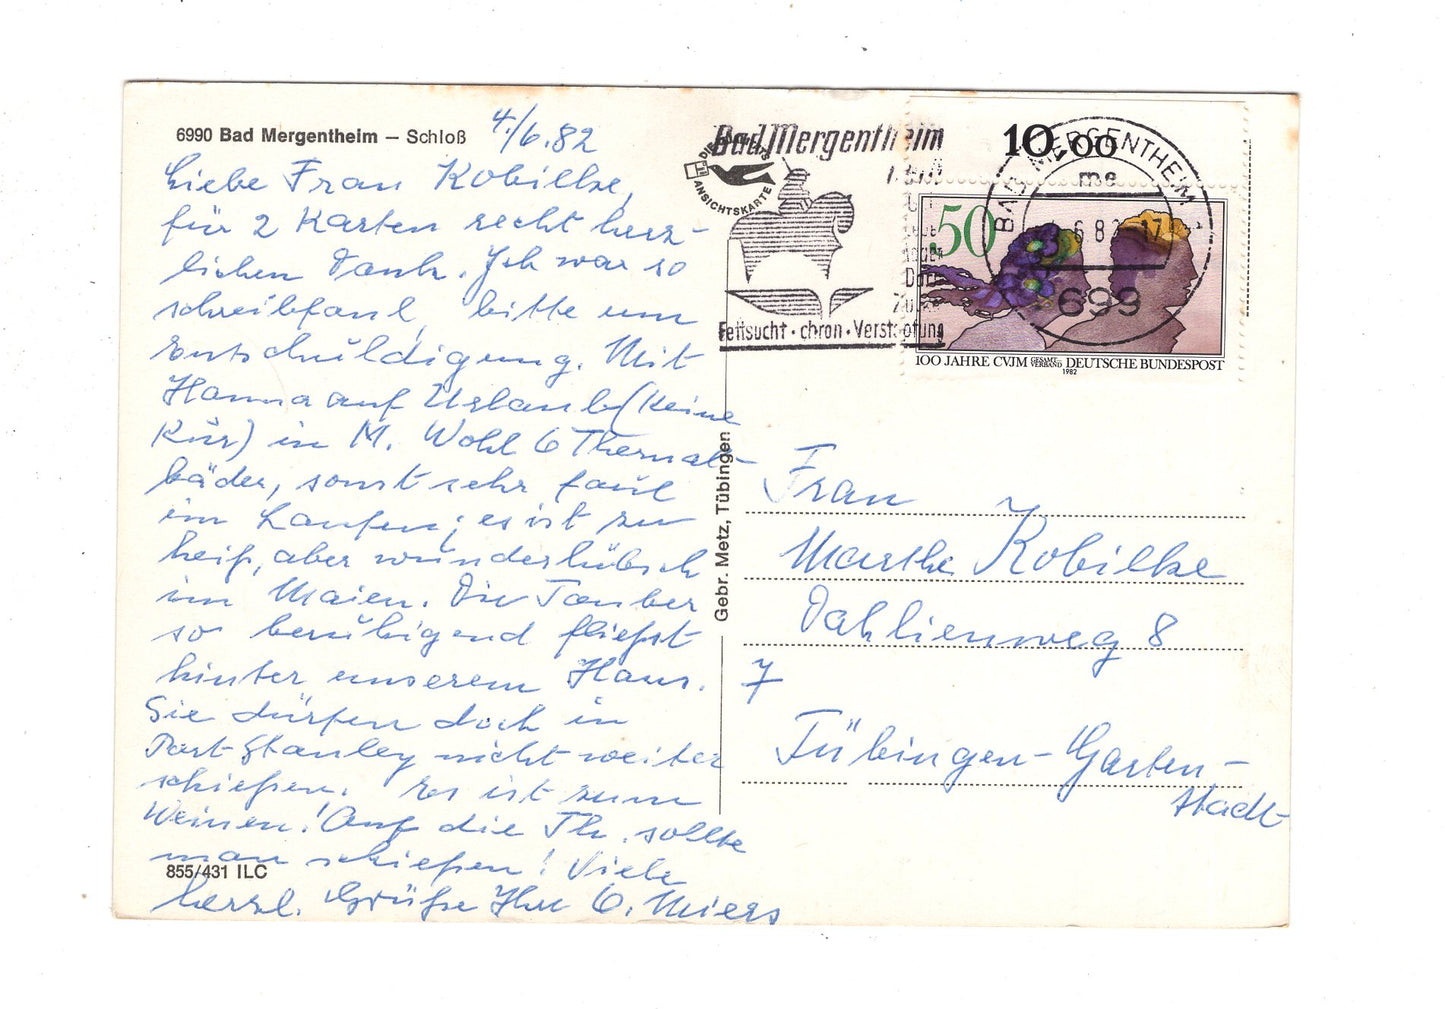 6990 Bad Mergentheim – Schloß
4./6.82
Liebe Frau Kobilke,
für 2 Karten recht herz-
lichen Dank. Ich war so
schreibfaul, bitte um
Entschuldigung. Mit
Hanna auf Urlaub (keine
Kur) in M. Wohl 6 Thermal-
bäder, sonst sehr faul
im Laufen; es ist zu
heiß, aber wunderhübsch
im Maien. Die Tauber
so beruhigend fließt
hinter unserem Haus.
Sie dürfen doch in
Port Stanley nicht weiter
schießen. Es ist zum
Weinen! Auf die Th. sollte
man schießen! Viele
herzl. Grüße Ihre
855/431 ILC
Gebr. Metz, Tübingen
DIE
ANSICHTSKARTE
Bad Mergentheim
Fettsucht · chron · Verstopfung
10,00
BAD MERGENTHEIM 1
ma
6 8 -17
699
50
100 JAHRE CVJM GESAMT VERBAND DEUTSCHE BUNDESPOST
1982
Frau
Marthe Kobilke
Dahlienweg 8
7
Tübingen-Garten-
stadt